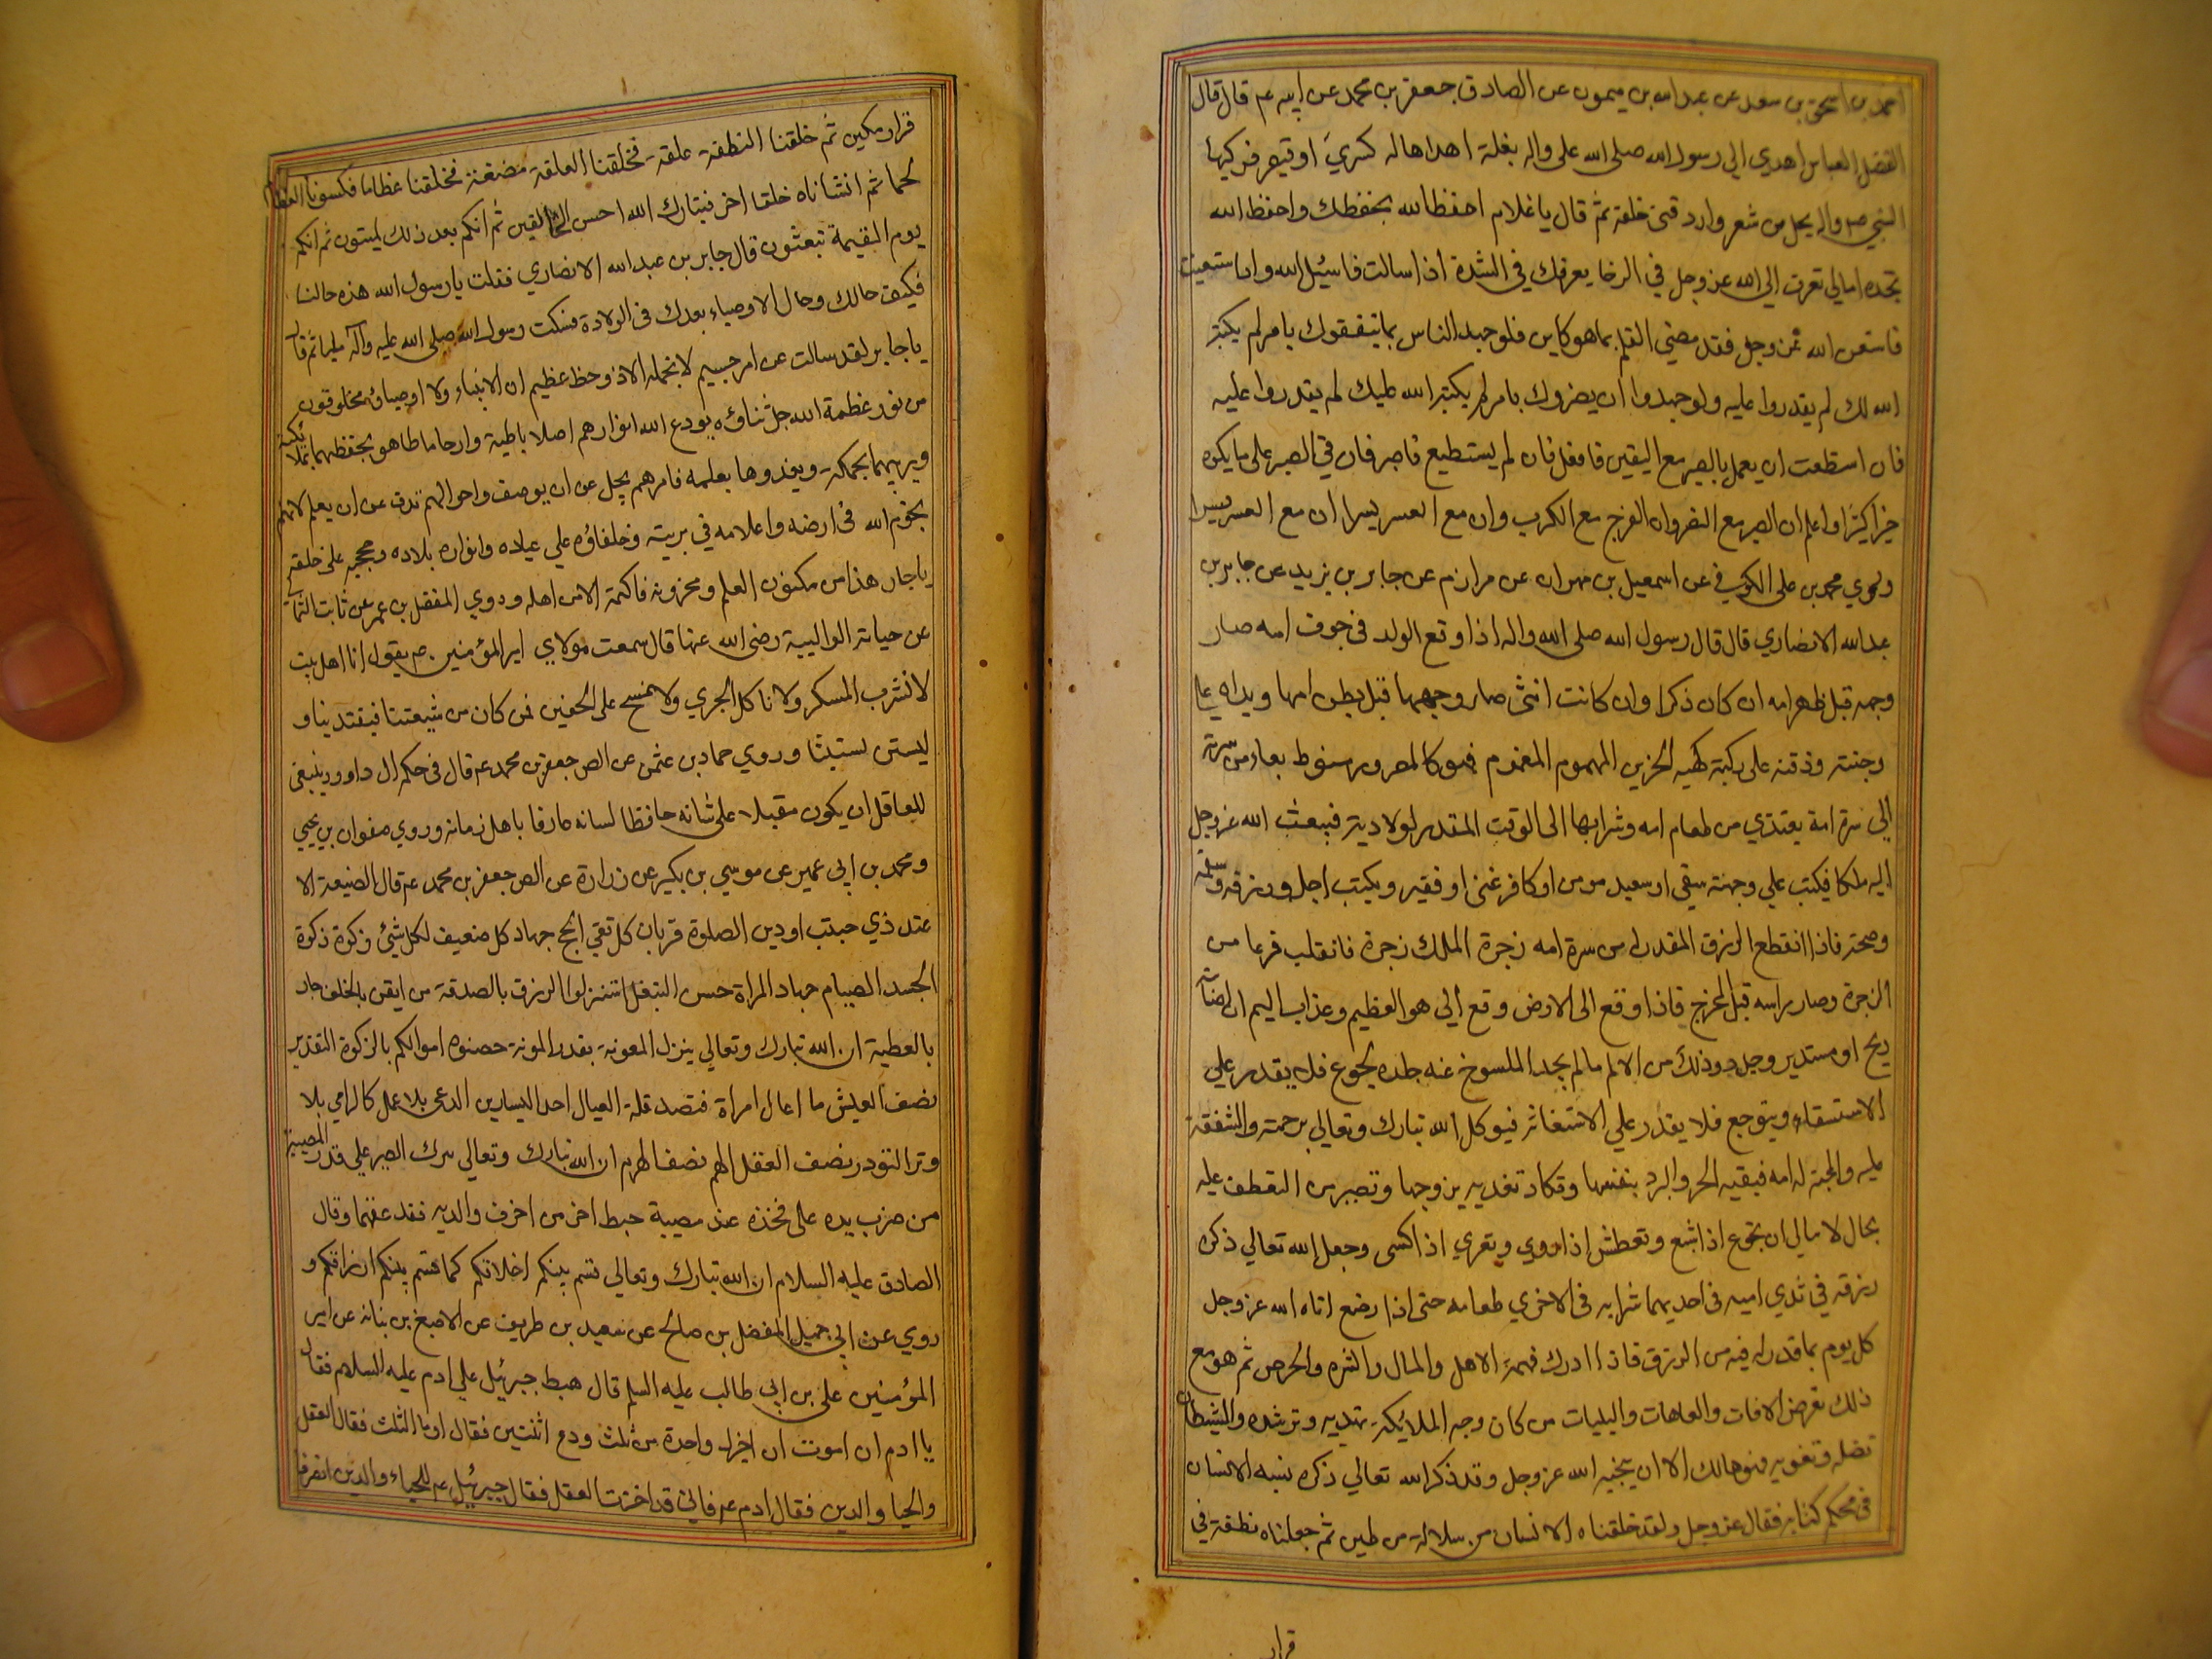 احمد بن اسحق بن سعد عن عبد الله بن ميمون عن الصادق جعفر بن محمد عن ابيه عم قال قال
الفضل العباس اهدي الي رسول الله صلى الله على واله بغلة اهداها له كسري او قيصر فركبها
النبي ص واله بجل من شعر واردقنى خلفة ثم قال يا غلام احفظ الله يحفظك واحفظ الله
تجده امامك تعرف الي الله عز وجل في الرخا يعرفك في الشدة اذا سالت فاسئل الله واذا ستعينت
فاستعن الله عز وجل فقد مضي القلم بما هو كاين فلو جهد الناس بما ينفعوك بامر لم يكتبه
الله لك لم يقدروا عليه ولو جهدوا ان يضروك بامر لم يكتبه الله عليك لم يقدروا عليه
فان استطعت ان يعمل بالصبر مع اليقين فافعل فان لم يستطيع فاصبر فان في الصبر على ما يكره
خيرا كثيرا واعلم ان الصبر مع النصر وان الفرج مع الكرب وان مع العسر يسرا ان مع العسر يسرا
وروي محمد بن على الكوفي عن اسمعيل بن مهران عن مرازم عن جابر بن يزيد عن جابر بن
عبد الله الانصاري قال قال رسول الله صلى الله واله اذا وقع الولد فى جوف امه صار
وجهه قبل ظهر امه ان كان ذكرا وان كانت انثى صار وجهها قبل بطن امها ويداه على
وجنته وذقنه على ركبته كهيه الحزين المهموم المغموم فهو كالمصرور منوط بمعاء من سرته
الي سرة امه يغتذي من طعام امه وشرابها الى الوقت المقدر لولادته فيبعث الله عز وجل
اليه ملكا فيكتب علي وجهته شقي او سعيد مومن او كافر غنى او فقير ويكتب اجله ورزقه وسقمه
وصحته فاذا انقطع الرزق المقدر له من سرة امه زجرة الملك زجرة فانقلب فزعا من
الزجرة وصار براسه قبل المخرج فاذا وقع الى الارض وقع الي هو العظيم وعذاب اليم ان اصابته
ريح او مستدير وجل دوذلك من الالم ما لم يجد الملسوخ عنه جلده يجوع فلا يقدر على
الاستسقاء ويتوجع فلا يقدر علي الاستغاثه فيوكل الله تبارك وتعالي برحمته والشفقة
عليه والمحبة له امه فيقيه الحر والبرد بنفسها وتكاد تفديه بروحها وتصير من التعطف عليه
بحال لا مالي ان تجوع اذا شبع وتعطش اذا روي وتعري اذا اكسى وجعل الله تعالي ذكره
رزقه في ثدي اميه فى احديهما شرابه فى الاخري طعامه حتى اذا رضع اتاه الله عز وجل
كل يوم بما قدر له فيه من الرزق فاذا ادرك فهمه الاهل والمال والشره والحرص ثم هو مع
ذلك تعرض الافات والعاهات والبليات من كان وجه الملائكة تهديه وترشده والشيطان
تضله وتغويه فهو هالك الا ان ينجيه الله عز وجل وقد ذكر الله تعالي ذكره نسبه الانسان
فى محكم كتابه فقال عز وجل ولقد خلقنا الانسان من سلالة من طين ثم جعلناه نطفة في
قرار
قرار مكين ثم خلقنا النطفة علقة فخلقنا العلقة مضغة فخلقنا عظاما فكسونا العظام
لحما ثم انشاناه خلقا اخر فتبارك الله احسن الخالقين ثم انكم بعد ذلك لميتون ثم انكم
يوم القيمة تبعثون قال جابر بن عبد الله الانصاري فقلت يا رسول الله هذه حالنا
فكيف حالك وحال الاوصياء بعدك فى الولادة فسكت رسول الله صلى الله عليه وآله مليا ثم قال
يا جابر لقد سالت عن امر جسيم لا يحمله الا ذو حظ عظيم ان الانبياء ولا اوصياؤ مخلوقون
من نور عظمة الله جل ثناؤه يودع الله انوارهم اصلابا طيبة وارحاما طاهره يحفظهما بملائكته
ويربيهما بحكمته ويغذوها بعلمه فامرهم يجل عن ان يوصف واحوالهم تدق عن ان يعلم لانهم
نجوم الله فى ارضه واعلامه في بريته وخلفاؤه علي عباده وانواره بلاده وحججه على خلقه
يا جابر هذا من مكنون العلم ومخزونه فاكتمه الا من اهله وروي المفضل بن عمر عن ثابت الثمالي
عن حبابة الوالبية رضى الله عنها قال سمعت مولاي امير المؤمنين ع م يقول انا اهل بيت
لا نشرب المسكر ولا ناكل الجري ولا نمسح على الخفين فمن كان من شيعتنا فيقتد بنا و
ليستن بسنتنا وروي حماد بن عثمن عن الص جعفر بن محمد عم قال في حكم ال داوود ينبغى
للعاقل ان يكون مقبلا على شانه حافظا لسانه عارفا باهل زمانه وروي صفوان بن يحيي
ومحمد بن ابى عمير عن موسي بن بكير عن زرارة عن الص جعفر بن محمد عم قال الصنيعة الا
عند ذي حسب او دين الصلوة قربان كل تقي الحج جهاد كل ضعيف لكل شئ زكوة زكوة
الجسد الصيام جهاد المراة حسن التبعل استنزلوا الرزق بالصدقة من ايقن بالخلف جاد
بالعطية ان الله تبارك وتعالي ينزل المعونة بقدر المونة حصنوه اموالكم بالزكوة التقدير
نصف العيش ما اعال امراة فتصد قلة العيال احد اليسارين الدعى بلا عمل كالرامي بلا
وتر التودد نصف العقل الهم نصف الهرم ان الله تبارك وتعالي ينزل الصبر علي قدر المصيبة
من ضرب يده على فخذه عند مصيبة حبط اخر من اخرف والديه فقد عقهما وقال
الصادق عليه السلام ان الله تبارك وتعالى قسم بينكم اخلاقكم كما قسم بينكم ارزاقكم و
روي عن ابي جميل المفضل بن صالح عن سعيد بن طريف عن الاصبغ بن نباته عن امير
المؤمنين على بن ابى طالب عليه السلم قال هبط جبرئيل علي ادم عليه السلام فقال
يا ادم ان امرت ان اخيرك واحدة من ثلث ودع اثنتين فقال او ما الثلث فقال العقل
والحيا والدين فقال ادم عم فانى قد اخترت العقل فقال جبرئيل عم للحياء والدين انصرفا